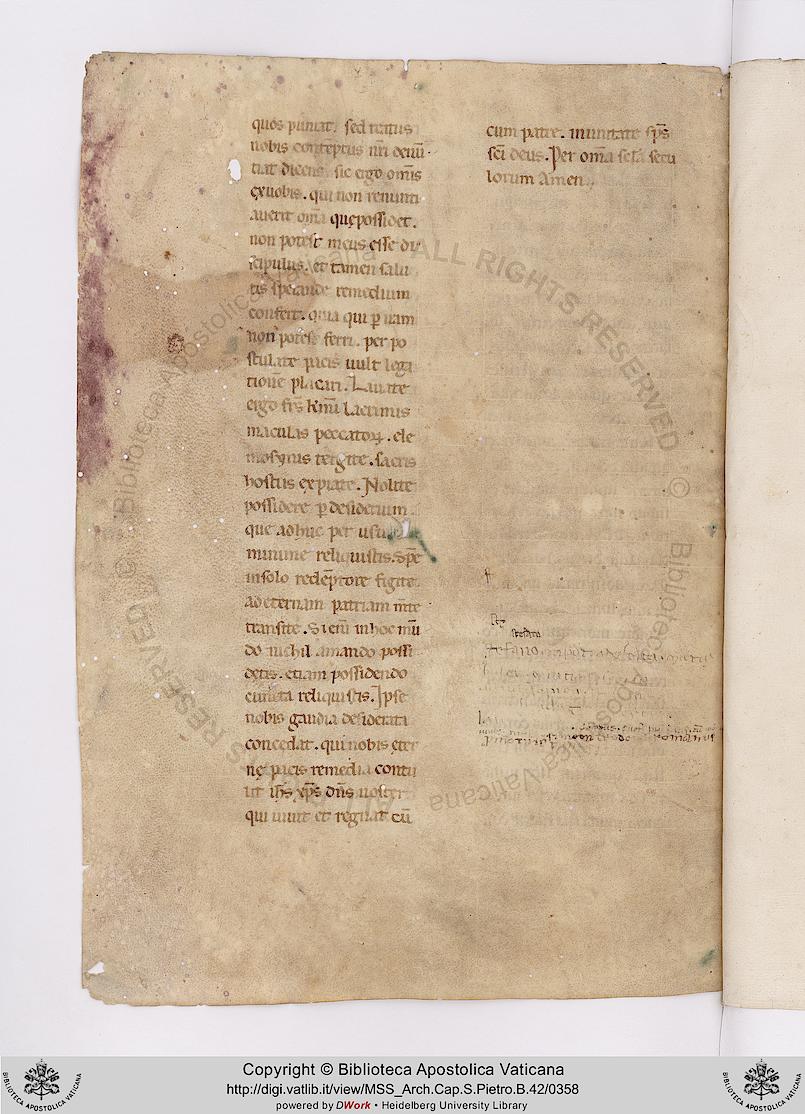 quos puniat. sed reatus
nobis conteptus nr̄i denū
tiat dicens. sic ergo om̄s
ex uobis. qui non renunti
auerit om̄a que possidet.
non potest meus esse di
scipulus. et tamen salu
tis sperande remedium
confert. quia qui p̄ iram
non potest ferri. per po
stulate pacis uult lega
tionē placari. Lauate
ergo frs̄ k̄mi lacrimis
maculas peccatoꝝ. ele
mosynis tergite. sacris
hostiis expiate. Nolite
possidere p̄ desiderium.
que adhuc per usu
minime reliquistis. Spē
in solo redēptore figite.
ad eternam patriam m̄te
transite. Si enī in hoc mū
do nichil amando possi
detis. etiam possidendo
cuncta reliquistis. Ipse
nobis gaudia desiderata
concedat. qui nobis eter
nę pacis remedia contu
lit ih̄s xp̄s dn̄s noster
qui uiuit et regnat cū
cum patre. in unitate sp̄s
sc̄i deus. Per om̄a sc̄la secu
lorum amen.
Copyright © Biblioteca Apostolica Vaticana
http://digi.vatlib.it/view/MSS_Arch.Cap.S.Pietro.B.42/0358
powered by DWork • Heidelberg University Library